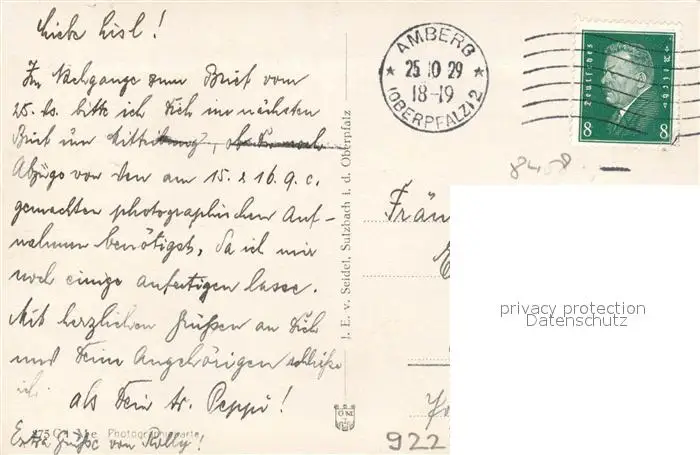 Liebe Lisl!
Im Nachgange zum Brief vom
25. ds. bitte ich Dich im nächsten
Brief um Mitteilung, ob Du noch
Abzüge von den am 15. & 16. 9. c.
gemachten photographischen Auf-
nahmen benötigst, da ich mir
noch einige anfertigen lasse.
Mit herzlichen Grüßen an Dich
und Deine Angehörigen schließe
ich
als Dein tr. Peppi!
Extra Grüße von Rolly!
Photographiekarte
J. E. v. Seidel, Sulzbach i. d. Oberpfalz
AMBERG
25 10 29
18-19
(OBERPFALZ) 2
Deutsches Reich
8 8
Fräu
privacy protection
Datenschutz
922